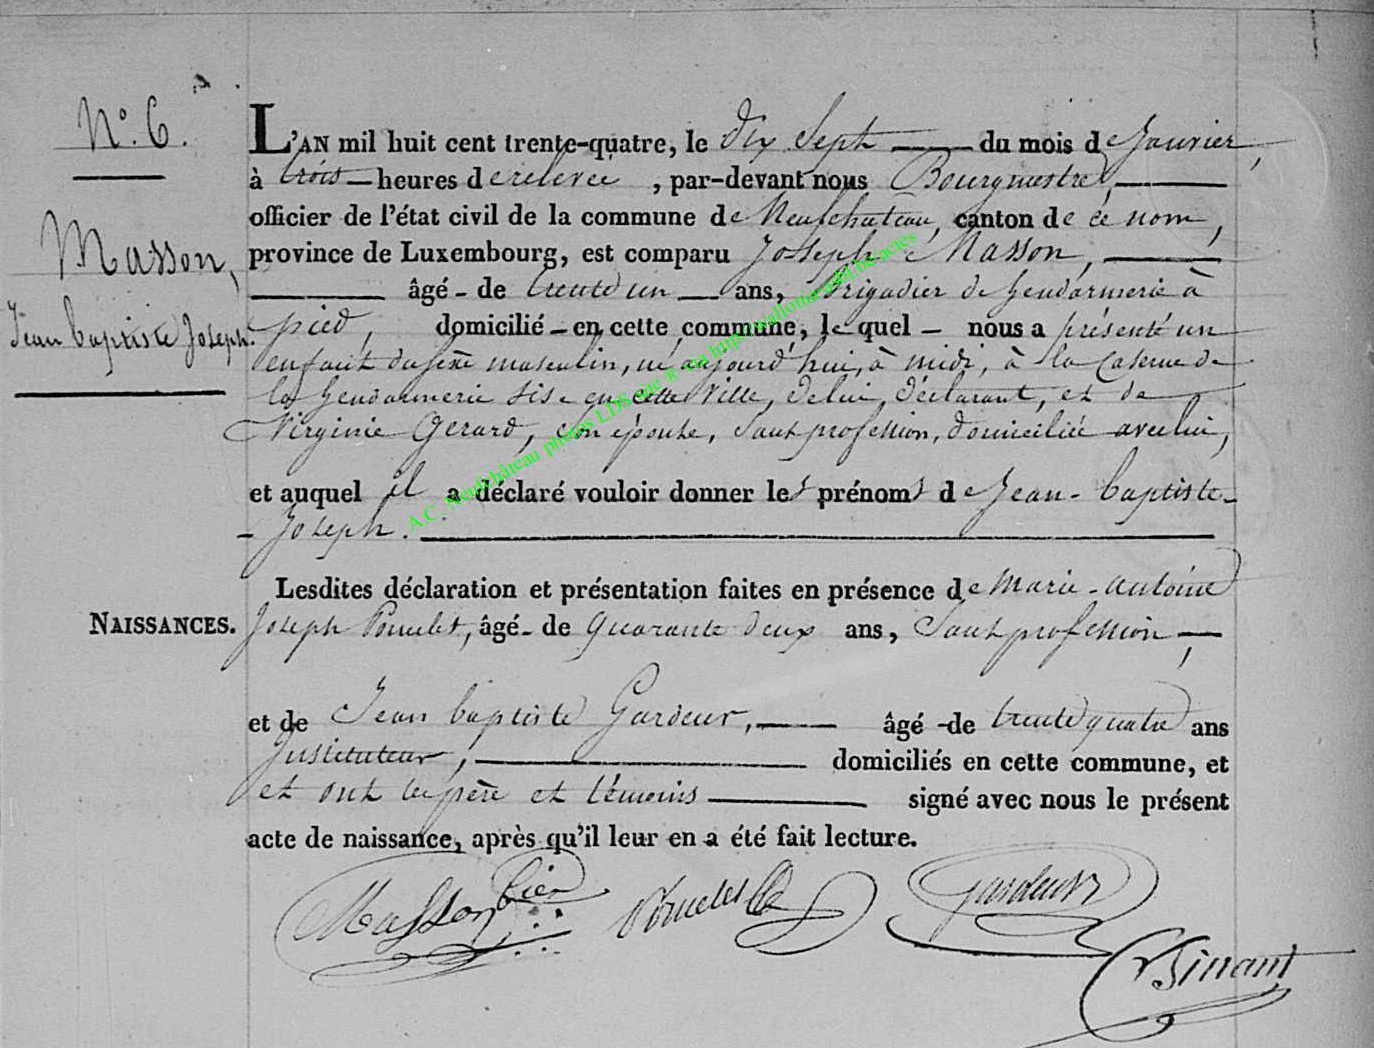 N.o 6.
L'AN mil huit cent trente-quatre, le dix Sept du mois de Janvier,
à trois heures de relevée, par-devant nous Bourgmestre,
officier de l'état civil de la commune de Neufchateau, canton de ce nom,
Masson,
province de Luxembourg, est comparu Joseph Masson,
âgé de trente un ans, Brigadier de Gendarmerie à
Jean baptiste Joseph.
pied, domicilié en cette commune, le quel nous a présenté un
enfant du sexe masculin, né aujourd'hui, à midi, à la Caserne de
la Gendarmerie sise en cette Ville, de lui, déclarant, et de
Virginie Gerard, son épouse, Sans profession, domiciliée avec lui,
et auquel il a déclaré vouloir donner les prénoms de Jean-baptiste-
-Joseph.
A.C. Neufchâteau photos LDS site w via http://wallonia.asbl.be/actes
Lesdites déclaration et présentation faites en présence de Marie-antoine
NAISSANCES.
Joseph Poncelet, âgé de Quarante deux ans, Sans profession,
et de Jean baptiste Gardeur, âgé de trente quatre ans
Instituteur, domiciliés en cette commune, et
et ont les père et témoins signé avec nous le présent
acte de naissance, après qu'il leur en a été fait lecture.
Masson bier Poncelet Gardeur
Dinant